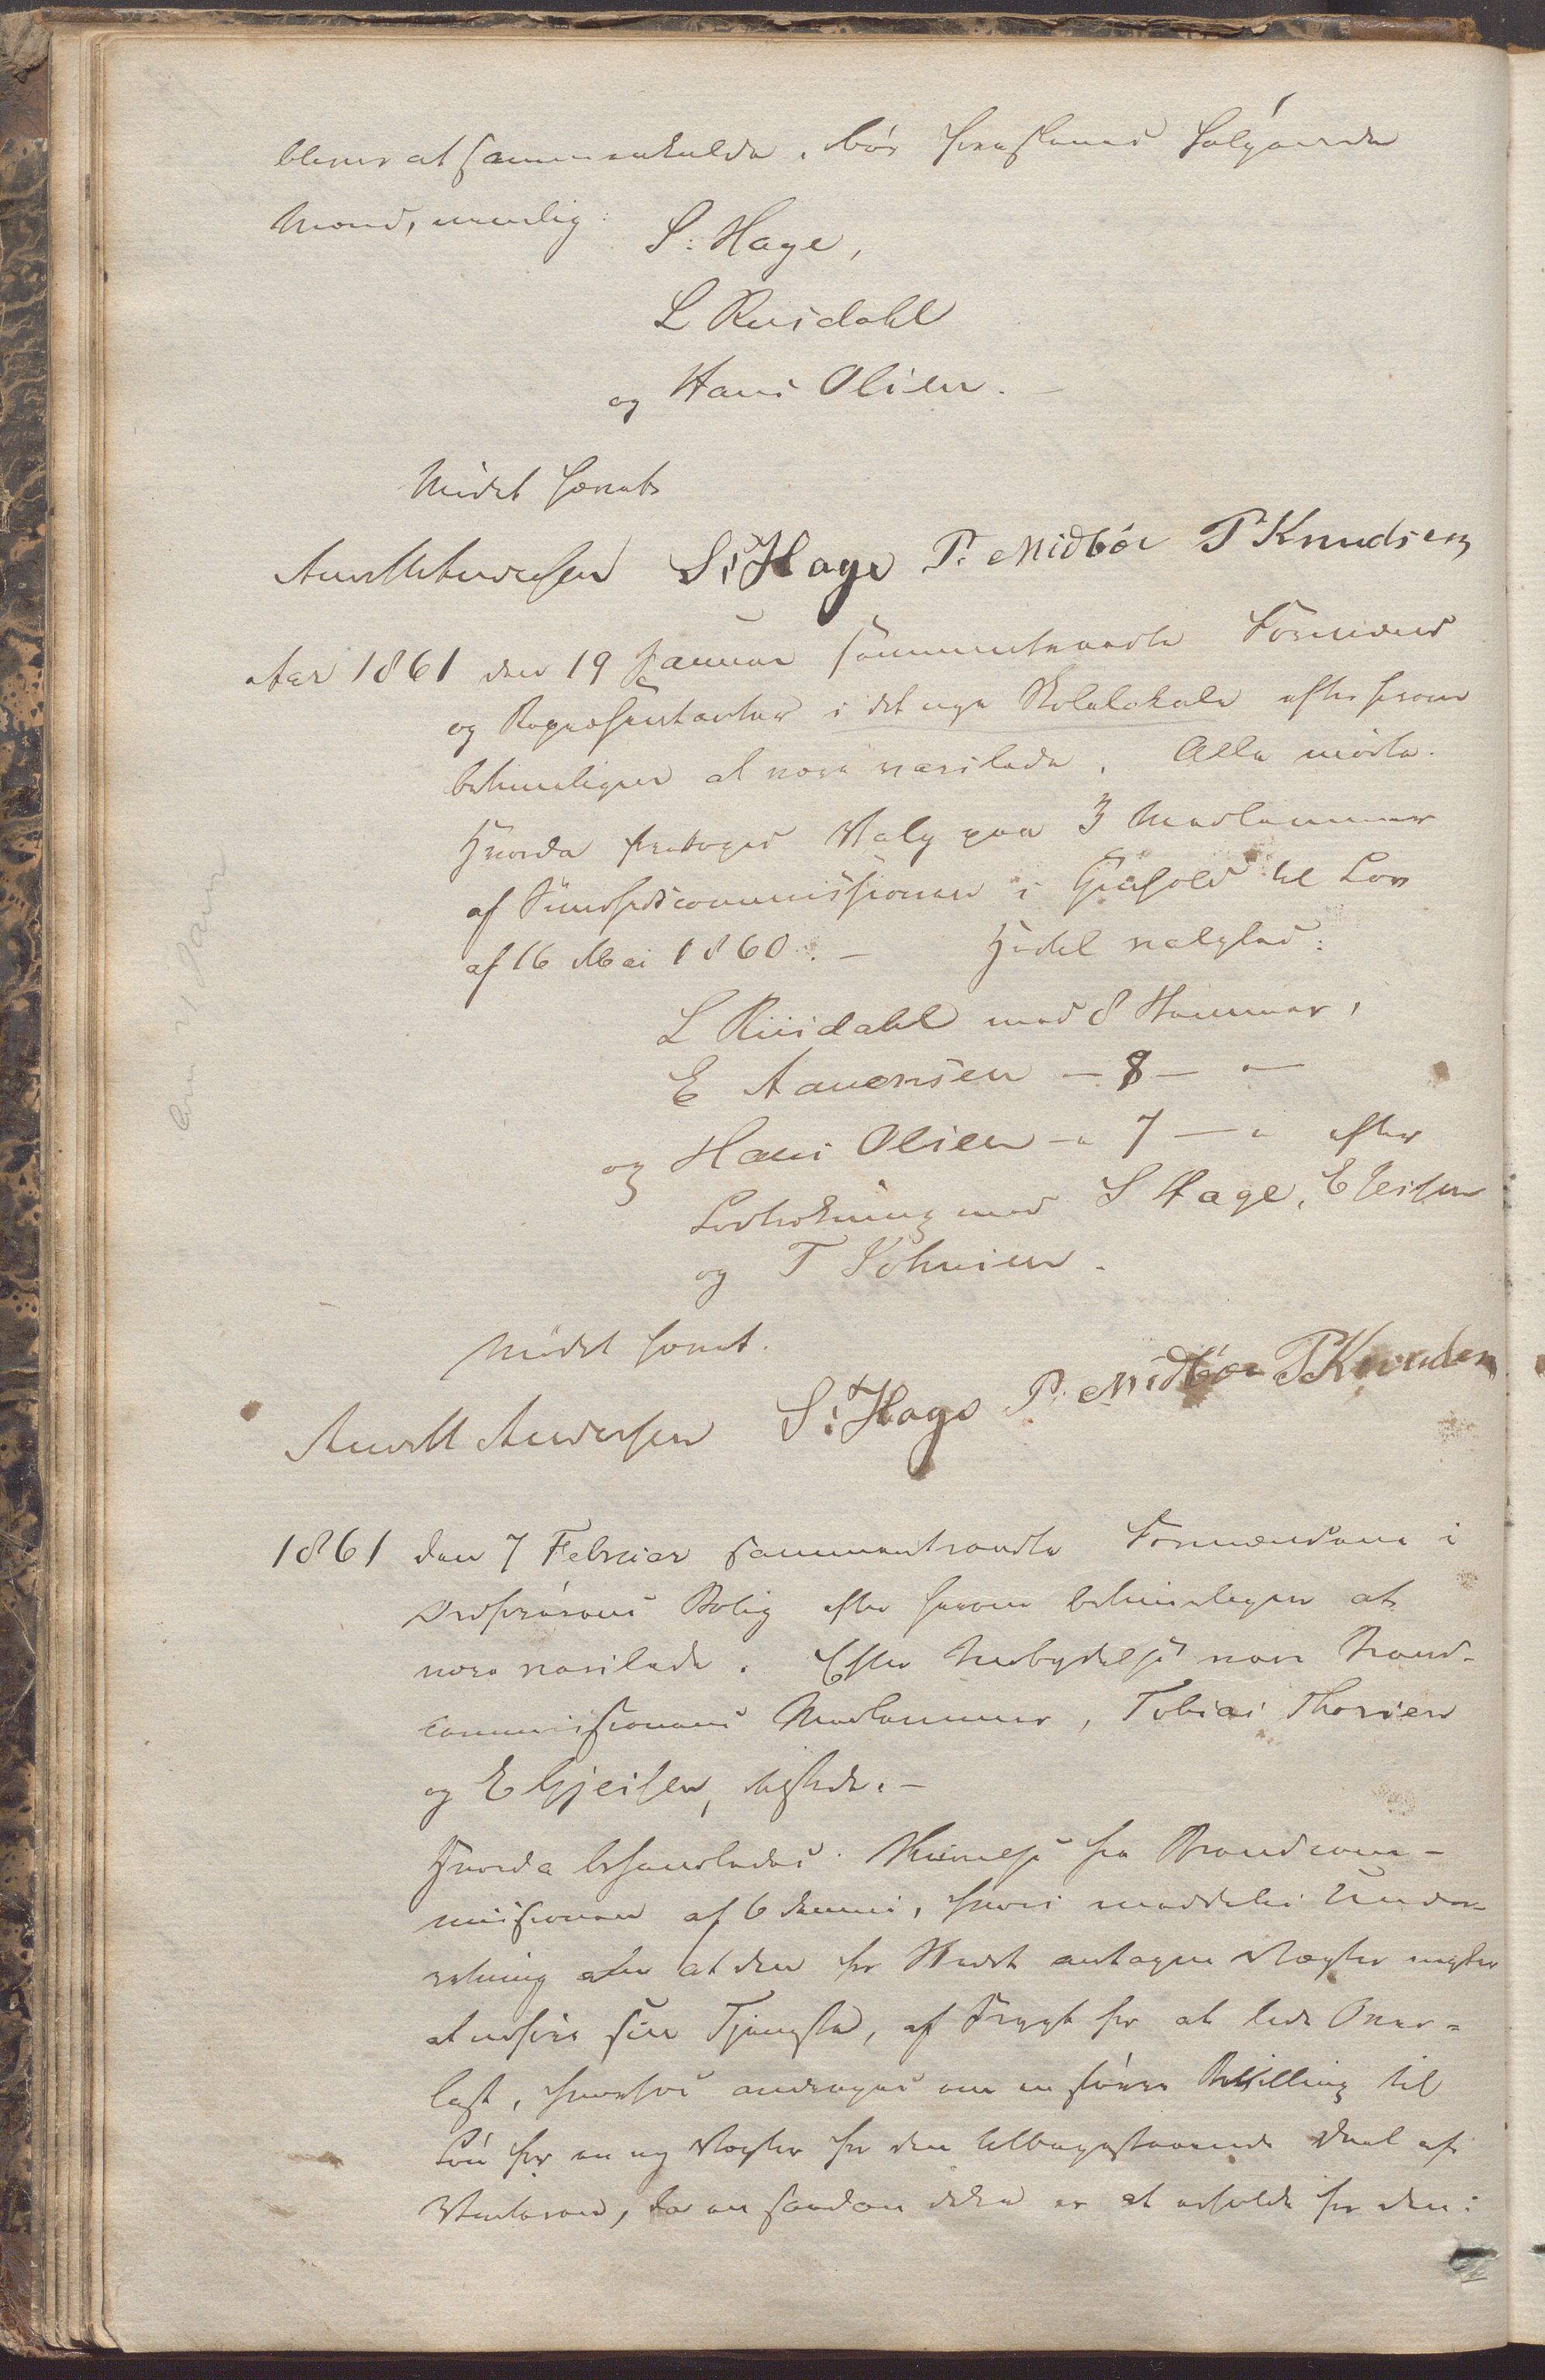 bliver at sammenkalde, bør fremstaae følgende
Mænd, nemlig: S: Hage,
L Risdahl
og Hans Olsen.
Mödet hævet
S: Hage P. Midböe P Knudsen
Aar 1861 den 19 Januar sammentraadte Formænd
og Repræsentanter i det nye Skolelokale efter herom
betimeligen at være varslede. Alle mødte.
Hvorda foretoges Valg paa 3 Medlemmer
af Sundhedscommissionen i Henhold til Lov
af 16 Mai 1860. – Hertil valgtes:
L Risdahl med 8 Stemmer,
E Aanensen – 8 – –
og Hans Olsen – 7 – efter
Lodtrækning med S Hage, E Gjeisen
og T Johnsen.
Mödet hævet.
Andersen S: Hage P. Midböe P Knudsen
1861 den 7 Februar sammentraadte Formændene i
Ordførerens Bolig efter herom betimeligen at
være varslede. Efter Indbydelse vare Brand-
commissionens Medlemmer, Tobias Thorsen
og E Gjeisen, tilstede. –
Hvorda behandledes Skrivelse fra Brandcom-
missionen af 6 dennes, hvori meddeles Under-
retning om at den for Stedet antagne Vægter nægter
at udføre sin Tjeneste, af Frygt for at lide Over-
last, hvorfor andrages om en større Bevilling til
Løn for en ny Vægter for den tilbagestaaende Deel af
Vinteren, da en saadan ikke er at erholde for den i